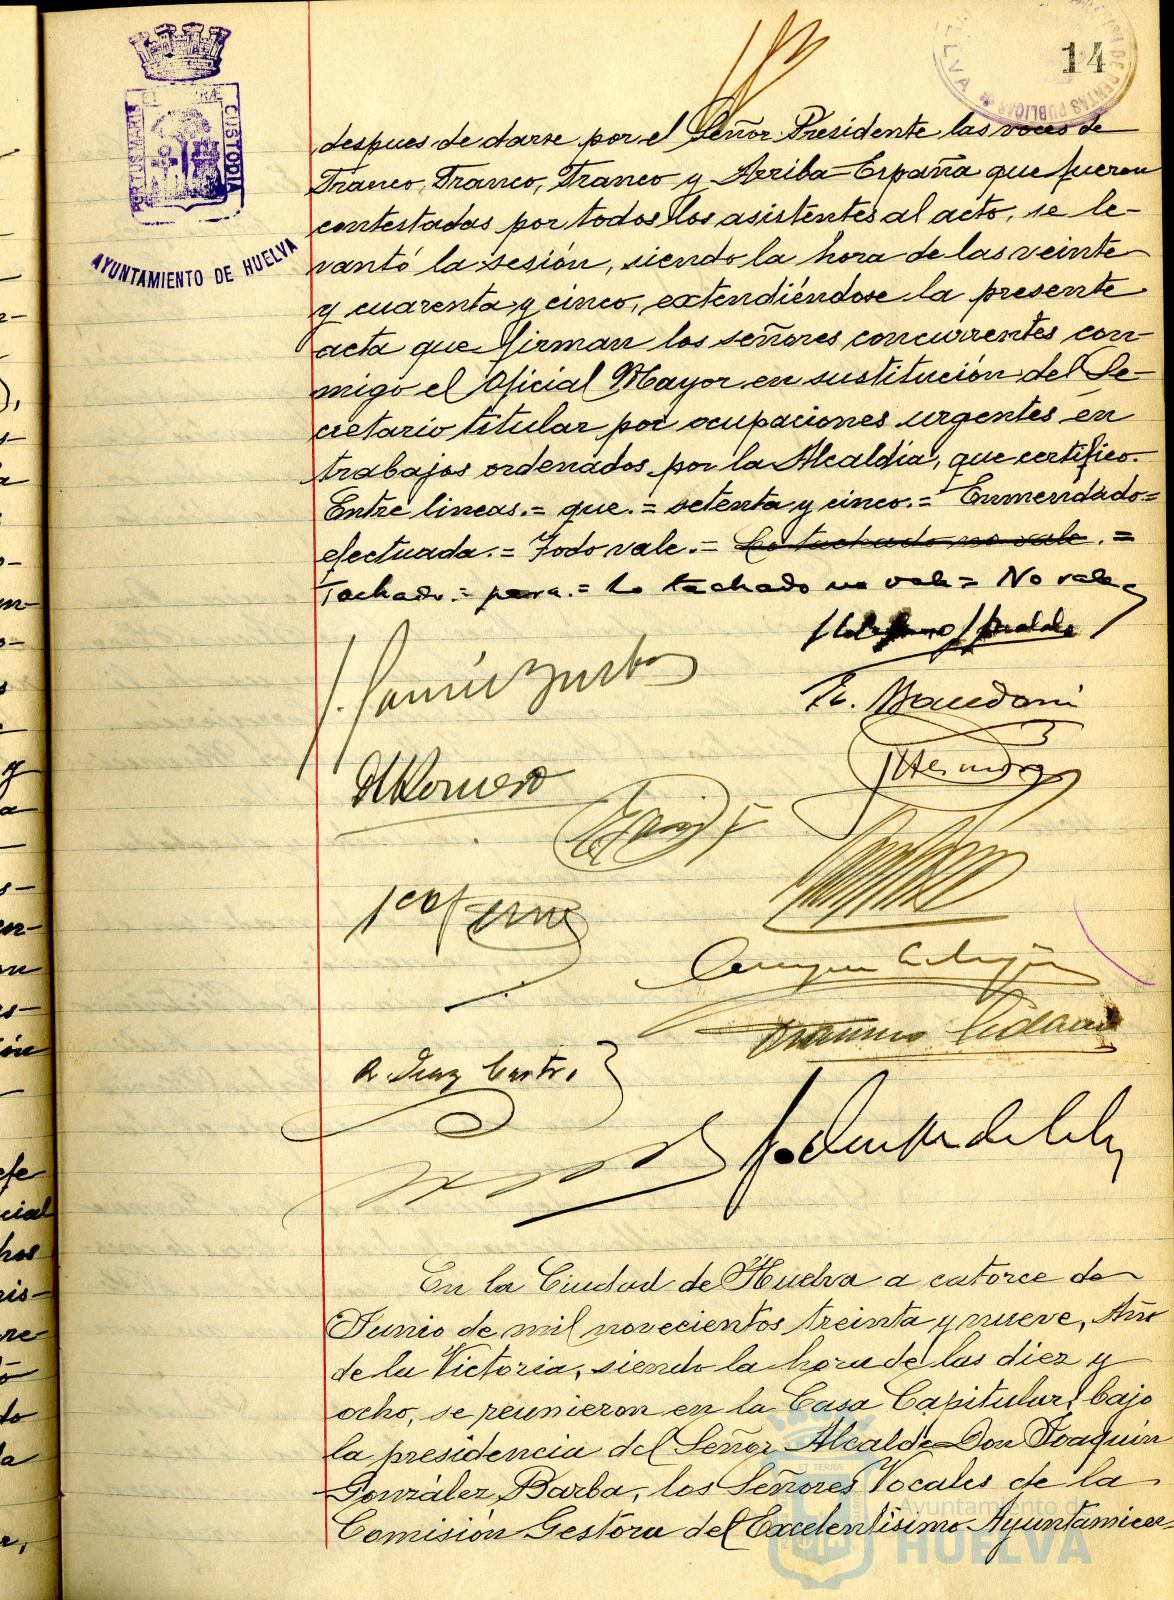 14
PORTUS MARIS
ET TERRÆ
CUSTODIA
AYUNTAMIENTO DE HUELVA
despues de darse por el Señor Presidente las voces de
Franco, Franco, Franco y Arriba España que fueron
contestadas por todos los asistentes al acto, se le-
vantó la sesión, siendo la hora de las veinte
y cuarenta y cinco, extendiéndose la presente
acta que firman los señores concurrentes con-
migo el Oficial Mayor en sustitución del Se-
cretario titular por ocupaciones urgentes en
trabajos ordenados por la Alcaldia, que certifico.
Entre lineas.= que.= setenta y cinco.= Enmendado=
efectuada.= Todo vale.= Lo tachado no vale.=
Tachado.= para.= Lo tachado no vale= No vale
Romero
R. Diaz Castro
En la Ciudad de Huelva a catorce de
Junio de mil novecientos treinta y nueve, Año
de la Victoria, siendo la hora de las diez y
ocho, se reunieron en la Casa Capitular, bajo
la presidencia del Señor Alcalde Don Joaquin
González Barba, los Señores Vocales de la
Comisión Gestora del Excelentisimo Ayuntamien-
Ayuntamiento de
HUELVA